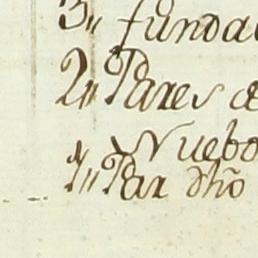 3,, funda
2,, Pares
Nuebo
1,, Par dhõ